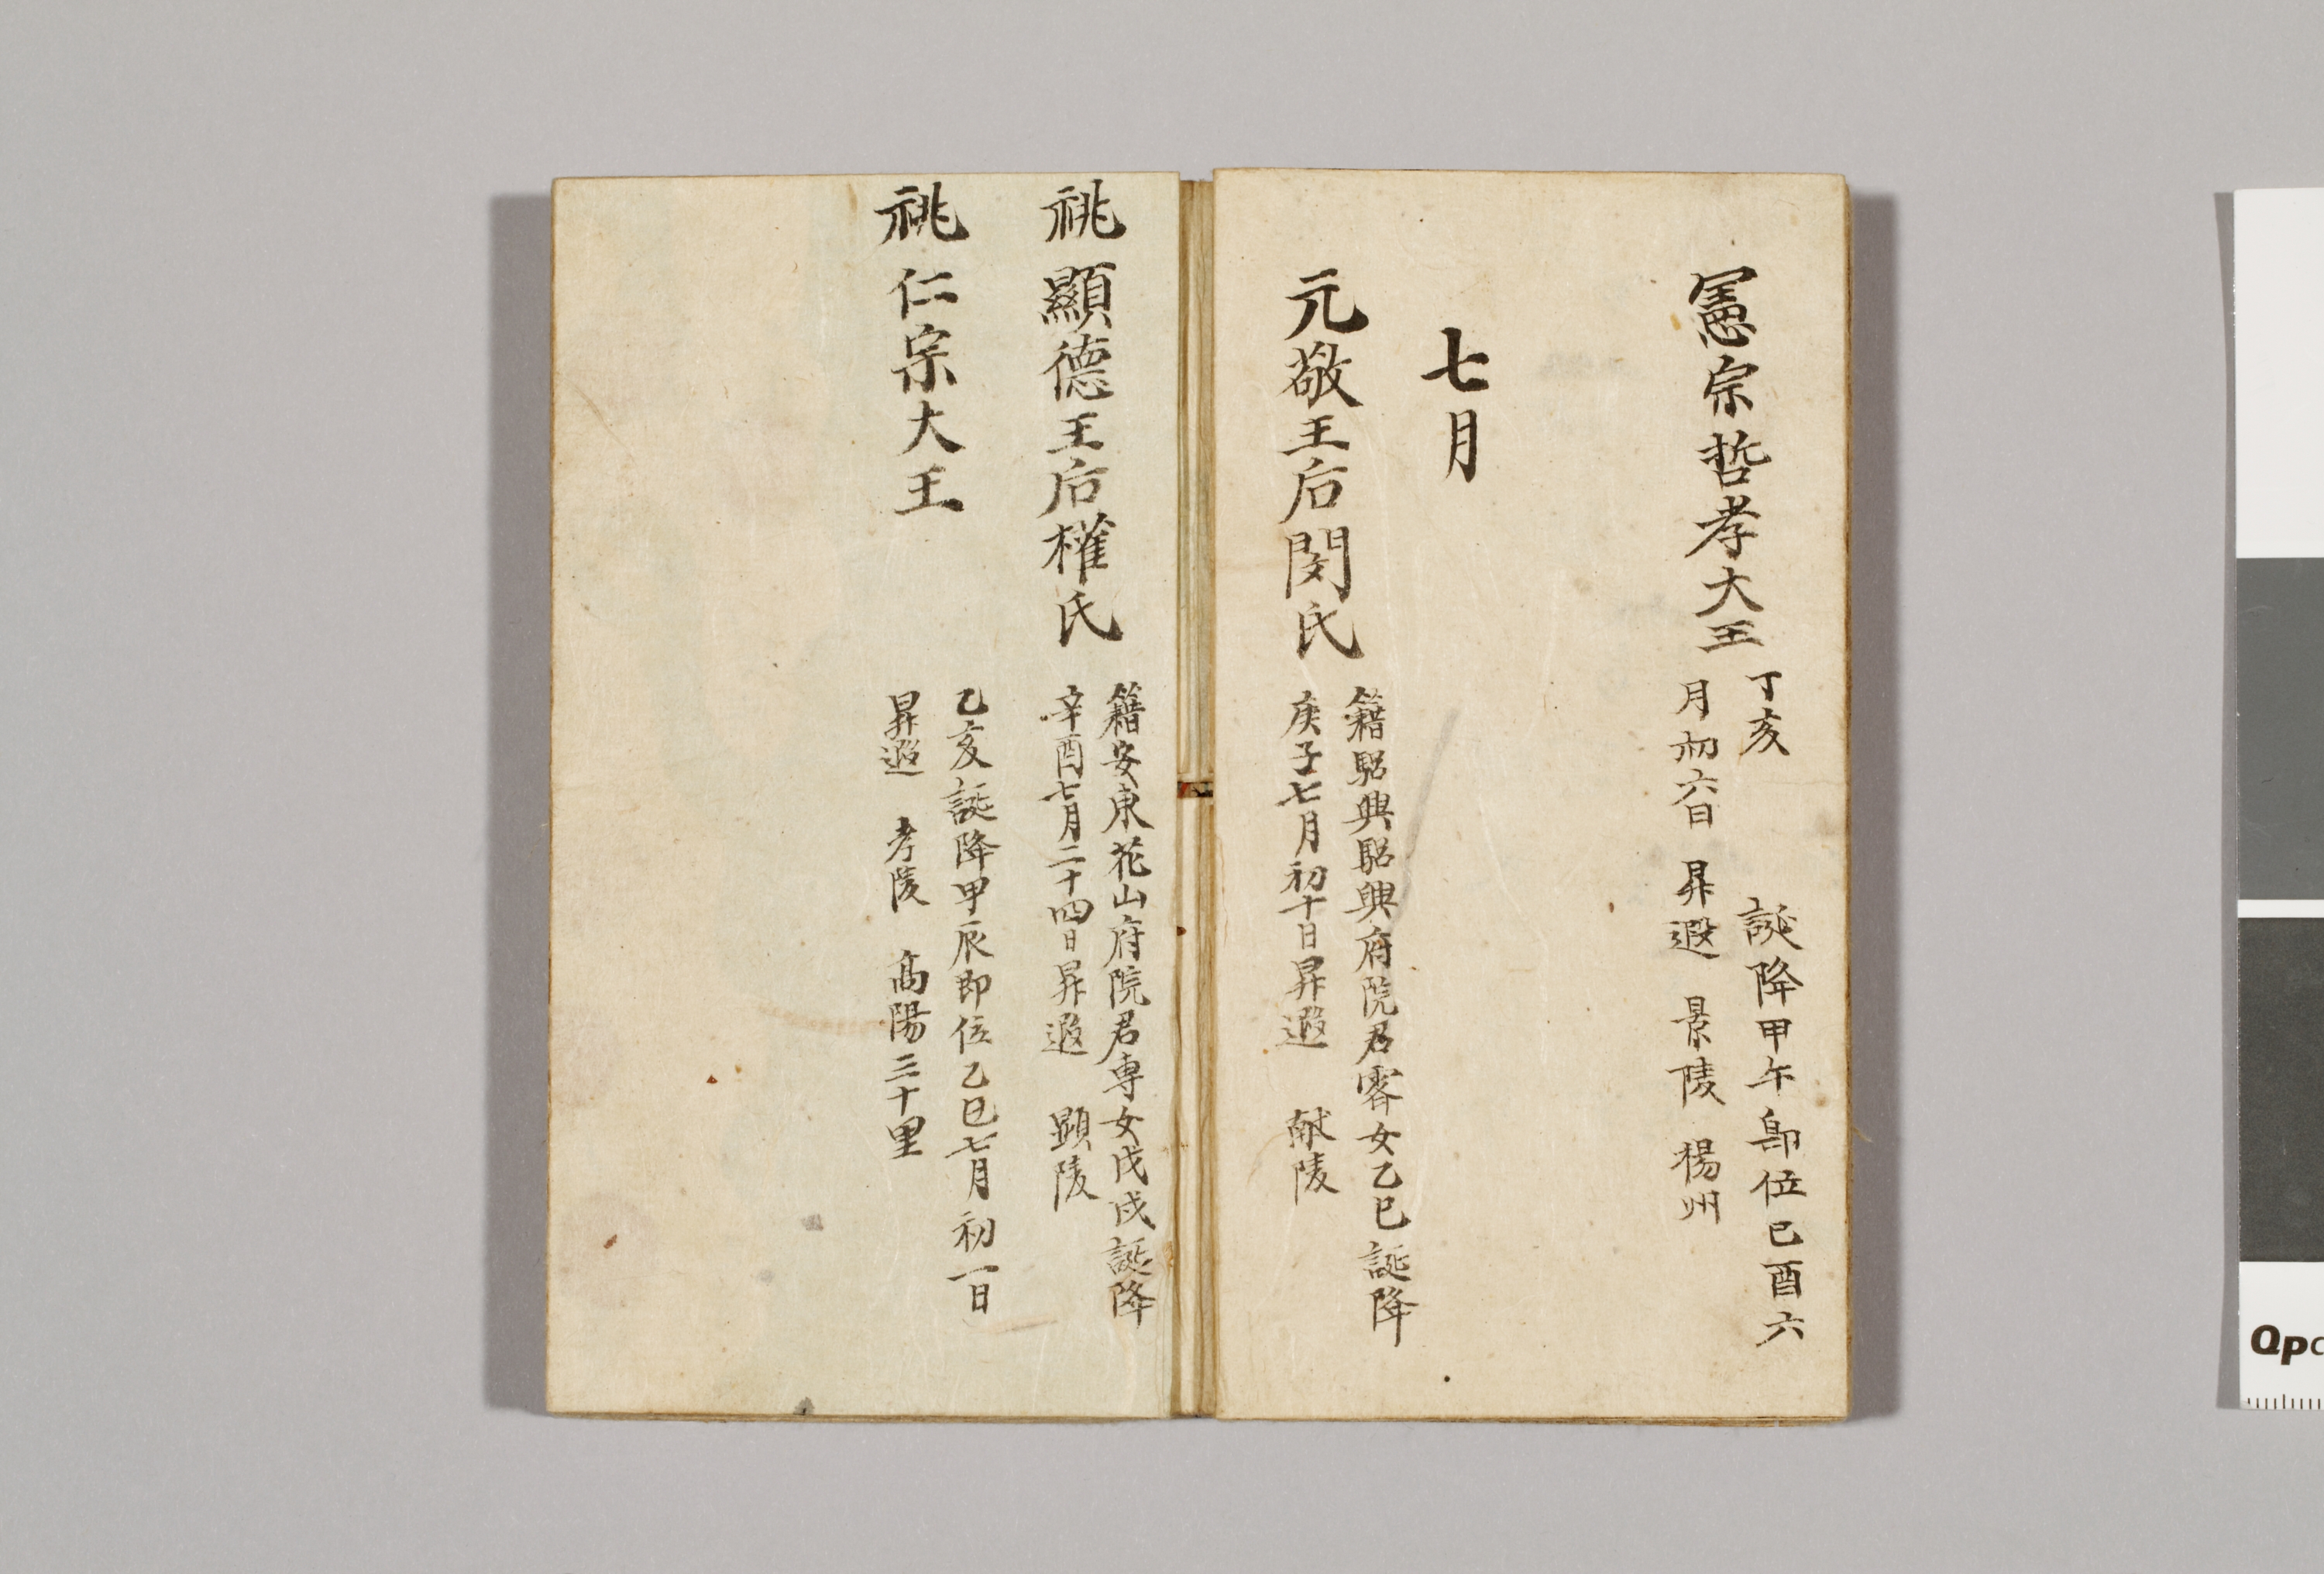 憲宗哲孝大王
丁亥 誕降甲午即位己酉六
月初六日 昇遐 景陵 楊州
七月
元敬王后閔氏
籍驪興驪興府院君霽女乙巳誕降
庚子七月初十日昇遐 献陵
祧 顯德王后權氏
籍安東花山府院君專女戊戌誕降
辛酉七月二十四日昇遐 顕陵
祧 仁宗大王
乙亥誕降甲辰即位乙巳七月初一日
昇遐 孝陵 高陽三十里
Qp